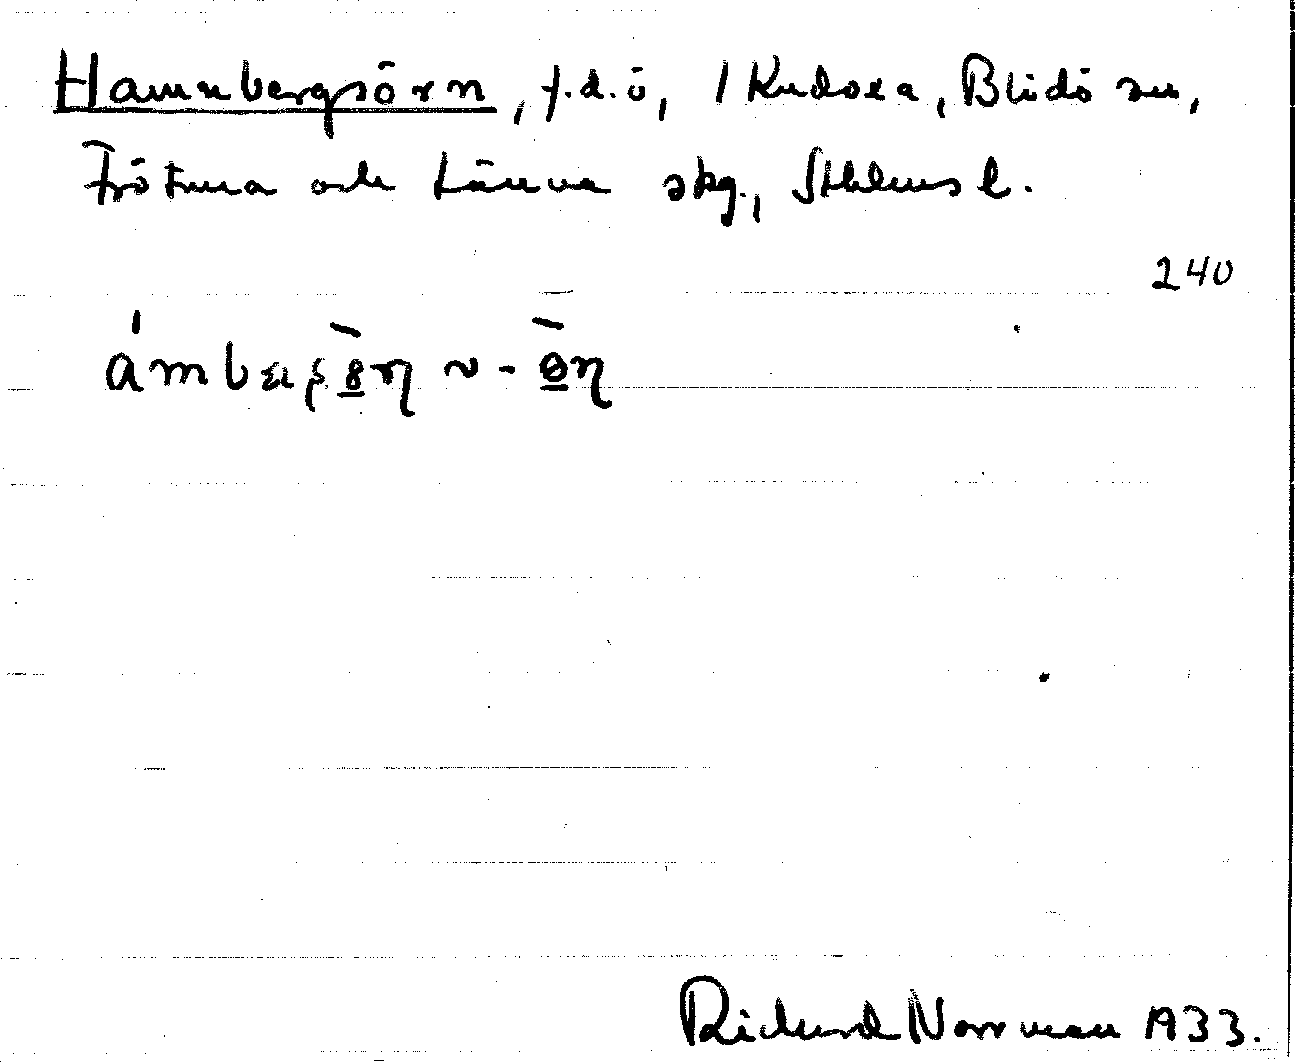 Hamnbergsörn, f.d. ö, / Kudoxa, Blidö sn,
Frötuna och Länna skg., Sthlms l.
240
Rickard Norrman 1933.